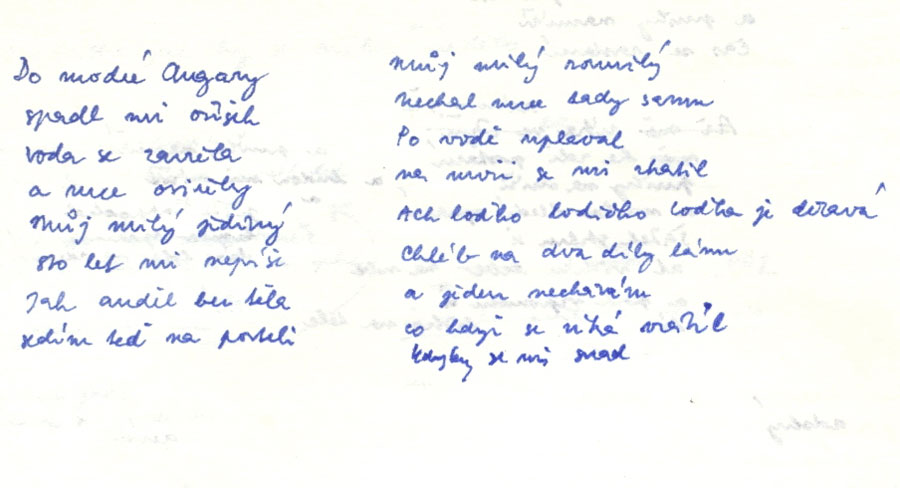 Do modré Angary
spadl mi oříšek
voda se zavřela
a ruce osiřely
můj milý jediný
sto let mi nepíše
Jak anděl bez těla
sedím teď na posteli
můj milý rozmilý
nechal mne tady samu
Po vodě uplaval
na moři se mi ztratil
Ach loďko lodičko loďka je děravá
Chléb na dva díly lámu
a jeden nechávám
co když se říká vrátil
kdyby se mi snad